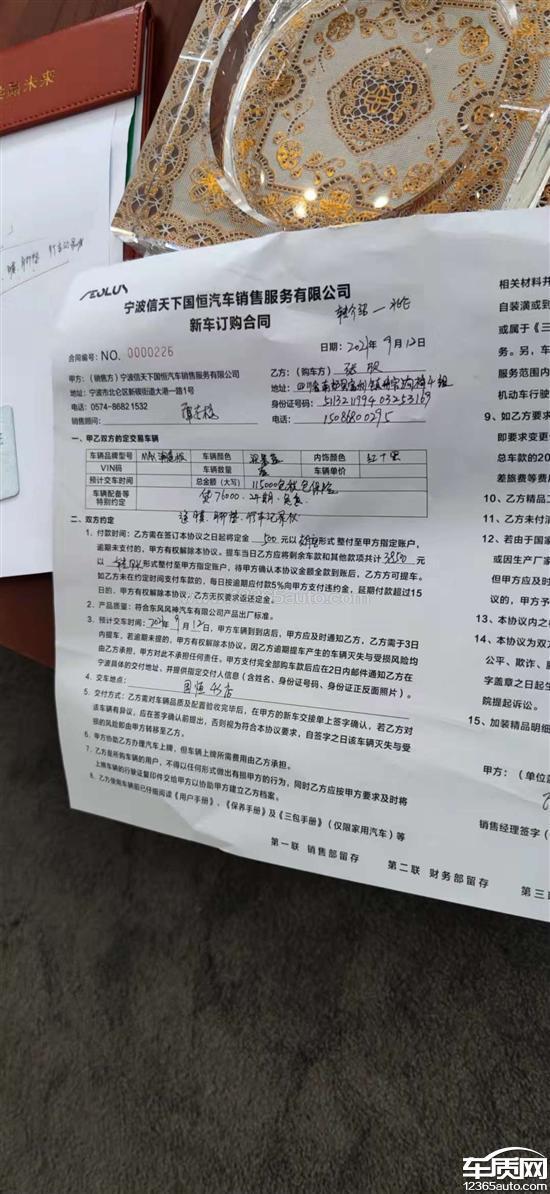 未来
AEOLUS
宁波信天下国恒汽车销售服务有限公司
新车订购合同
转介绍一礼
合同编号: NO. 0000226
日期: 2021年9月12日
甲方:(销售方)宁波信天下国恒汽车销售服务有限公司
乙方:(购车方)张
地址: 宁波市北仑区新碶街道大港一路1号
地址:
电话: 0574-86821532
身份证号码:
销售顾问:
电话: 15086800295
一、甲乙双方的定交易车辆
车辆品牌型号
车辆颜色
内饰颜色 红+黑
VIN码
车辆数量
车辆单价
预计交车时间
总金额(大写) 115000包税包保险
车辆配备等
特别约定
贷76000. 24期.免息
送膜.脚垫.行车记录仪
二、双方约定
1、付款时间: 乙方需在签订本协议之日起将定金 500 元以 形式 整付至甲方指定账户,
逾期未支付的, 甲方有权解除本协议。提车当日乙方应将剩余车款和其他款项共计 3850 元
以 形式整付至甲方指定账户, 待甲方确认本协议金额全款到账后, 乙方方可提车。
如乙方未在约定时间支付车款的, 每日按逾期应付款5%向甲方支付违约金, 延期付款超过15
日的, 甲方有权解除本协议, 乙方无权要求返还定金。
2、产品质量: 符合东风风神汽车有限公司产品出厂标准。
3、预计交车时间: 2021年9月12日, 甲方车辆到到店后, 甲方应及时通知乙方, 乙方需于3日
内提车, 若逾期未提的, 甲方有权解除本协议。因乙方逾期提车产生的车辆灭失与损毁风险均
由乙方承担, 甲方对此不承担任何责任。甲方支付完全部购车款后应在2日内邮件通知乙方在
宁波具体的交付地址, 并提供指定交付人信息(含姓名、身份证号码、身份证正反面照片)。
4、交车地点: 国恒4S店
5、交付方式: 乙方需对车辆品质及配置验收完毕后, 在甲方的新车交接单上签字确认, 若乙方对
该车辆有异议, 应在签字确认前提出, 否则视为符合本协议要求, 自签字之日该车辆灭失与受
损的风险即由甲方转移至乙方。
6、甲方协助乙方办理汽车上牌, 但车辆上牌所需费用由乙方承担。
7、乙方是所购车辆的用户, 不得以任何形式做出有损甲方的行为, 同时乙方应按甲方要求及时将
上牌车辆的行驶证复印件交给甲方以协助甲方建立乙方档案。
8、乙方使用车辆前已仔细阅读《用户手册》、《保养手册》及《三包手册》(仅限家用汽车)等
第一联 销售部留存 第二联 财务部留存 第三
相关材料并
自装潢或到
或属于《三
务。另, 车
服务范围内
机动车行驶
9、如乙方要
即要求变更
总车款的20
差旅费等费
10、乙方精品
11、乙方未付清
12、若由于国家
或因生产厂家
但甲方应及时
议的, 甲方予
13、本协议内之
14、本协议为双
公平、欺诈、
字盖章之日起
院提起诉讼。
15、加装精品明细
甲方:(单位
销售经理签字(
车质网
12365auto.com